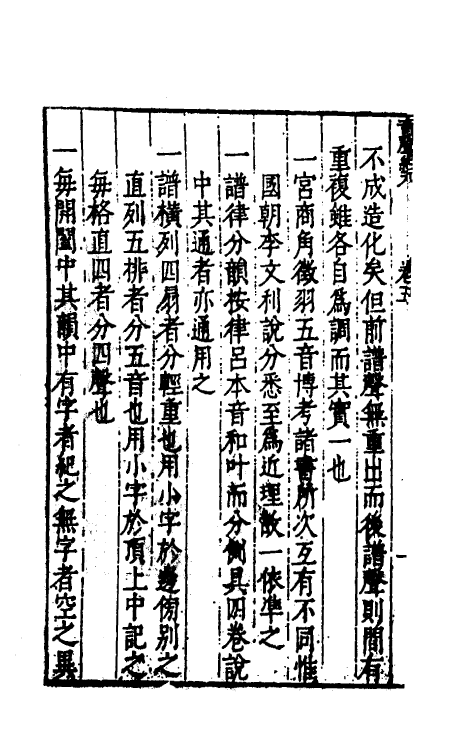 卷五
不成造化矣但前譜聲無重出而後譜聲則間有
重複雖各自為調而其實一也
一宮商角徵羽五音博考諸書所次互有不同惟
國朝李文利說分悉至為近理故一依準之
一譜律分韻按律呂本音和叶而分例具四卷說
中其通者亦通用之
一譜橫列四扇者分輕重也用小字於邊傍別之
直列五排者分五音也用小字於頂上中記之
每格直四者分四聲也
一每開闔中其韻中有字者紀之無字者空之異